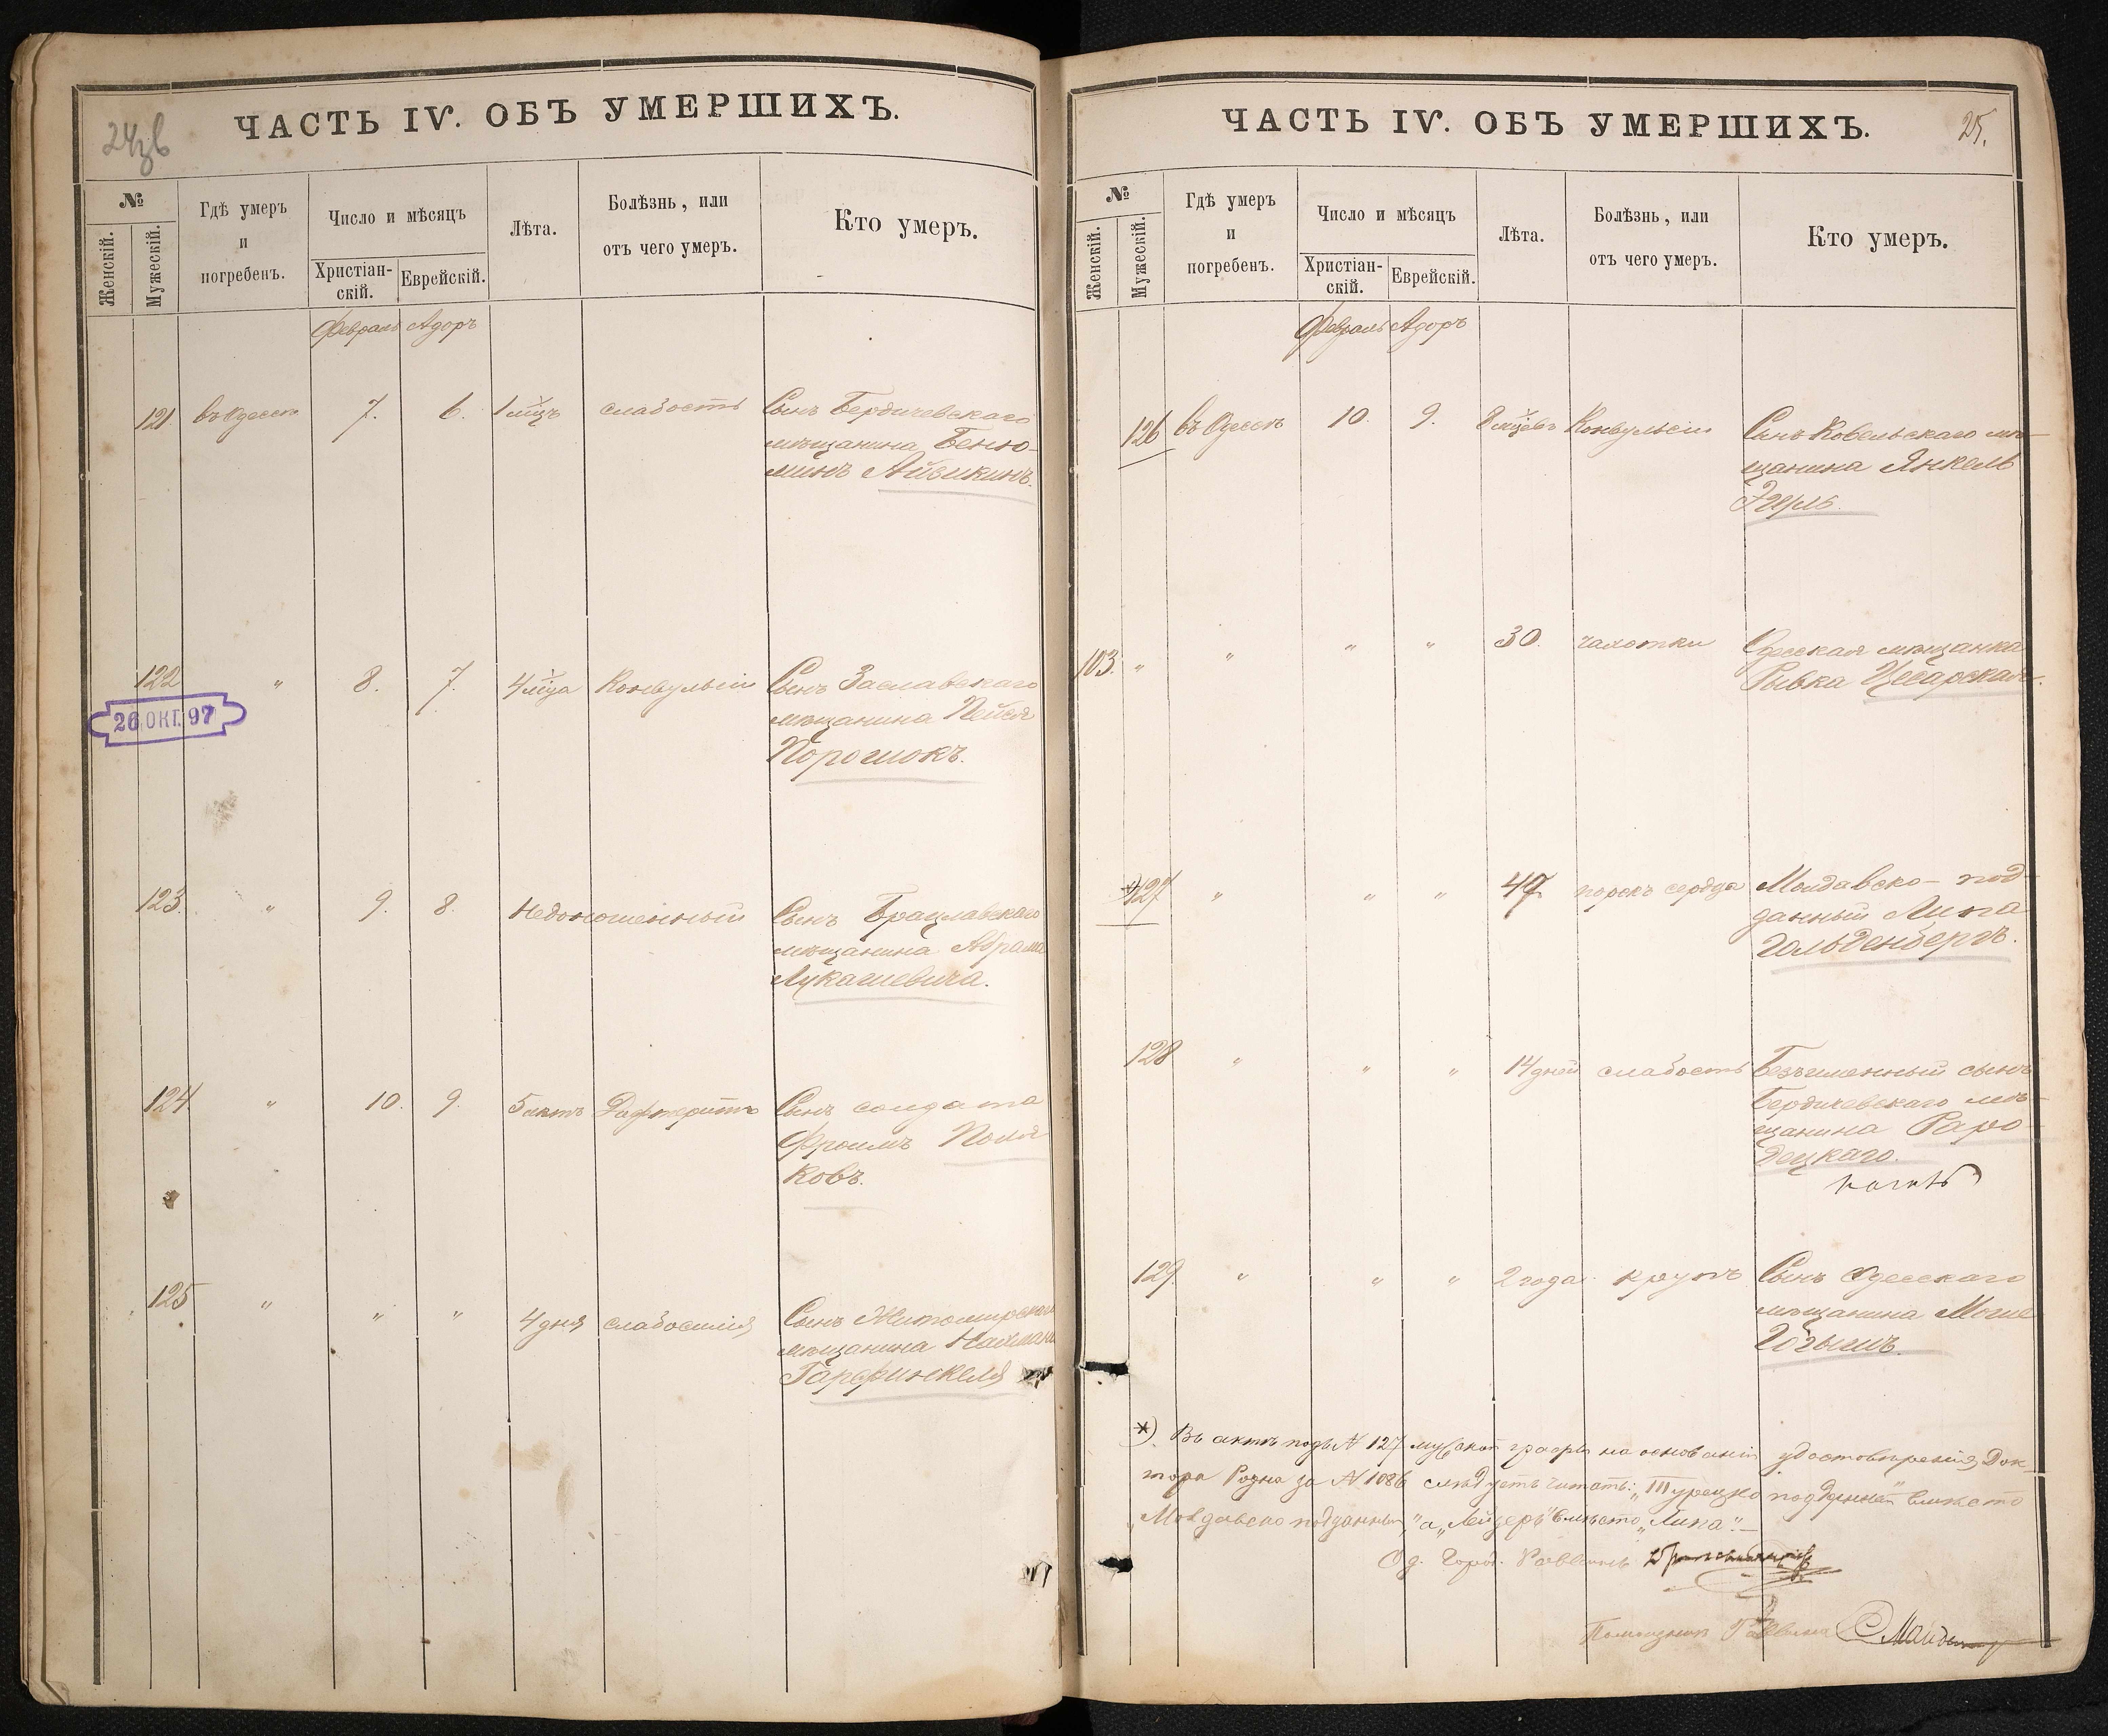 24зв
ЧАСТЬ IV. ОБЪ УМЕРШИХЪ.
№
Женскій.
Мужескій.
Гдѣ умеръ
и
погребенъ.
Число и мѣсяцъ
Христіан-
скій.
Еврейскій.
Лѣта.
Болѣзнь, или
отъ чего умеръ.
Кто умеръ.
Февраль Адоръ
121. въ Одессѣ 7. 6. 1 мѣц слабость Сынъ Бердичевскаго
мѣщанина Беню-
минъ Айзикинъ.
122 " 8. 7. 4 мѣца Конвульсіи Сынъ Заславскаго
мѣщанина Пейся
Порошокъ.
26 ОКТ. 97
123. " 9. 8. Недоношенный Сынъ Брацлавскаго
мѣщанина Абрама
Лукашевича.
124 " 10. 9. 5 лѣтъ Дифтеритъ Сынъ солдата
Фроимъ Поля
ковъ.
125 " " " 4 дня слабосилія Сынъ Житомирскаго
мѣщанина Нахмана
Гарфинкеля
ЧАСТЬ IV. ОБЪ УМЕРШИХЪ.
25.
№
Женскій.
Мужескій.
Гдѣ умеръ
и
погребенъ.
Число и мѣсяцъ
Христіан-
скій.
Еврейскій.
Лѣта.
Болѣзнь, или
отъ чего умеръ.
Кто умеръ.
Февраль Адоръ
126 въ Одессѣ 10. 9. 8 мѣцевъ Конвульсіи Сынъ Ковельскаго мѣ-
щанина Янкель
103. " " " " 30. чахотки Одесская мѣщанка
Рывка Цесарская.
*) 127 " " " 47 порокъ сердца Молдавско-под-
данный Липа
Гольденбергъ.
128 " " " 14 дней слабость Безъименный сынъ
Бердичевскаго мѣ-
щанина Горо-
децкаго.
129. " " " 2 года крупъ Сынъ Одесскаго
мѣщанина Моше
*) Въ актѣ подъ № 127 мужской графы на основаніи удостовѣренія Док-
тора Розна за № 1086 слѣдуетъ читать: „Турецко подданный" вмѣсто
„Молдавско подданный," а „Лейзеръ" вмѣсто „Липа".—
Од. Город. Раввинъ
Помощникъ Раввина